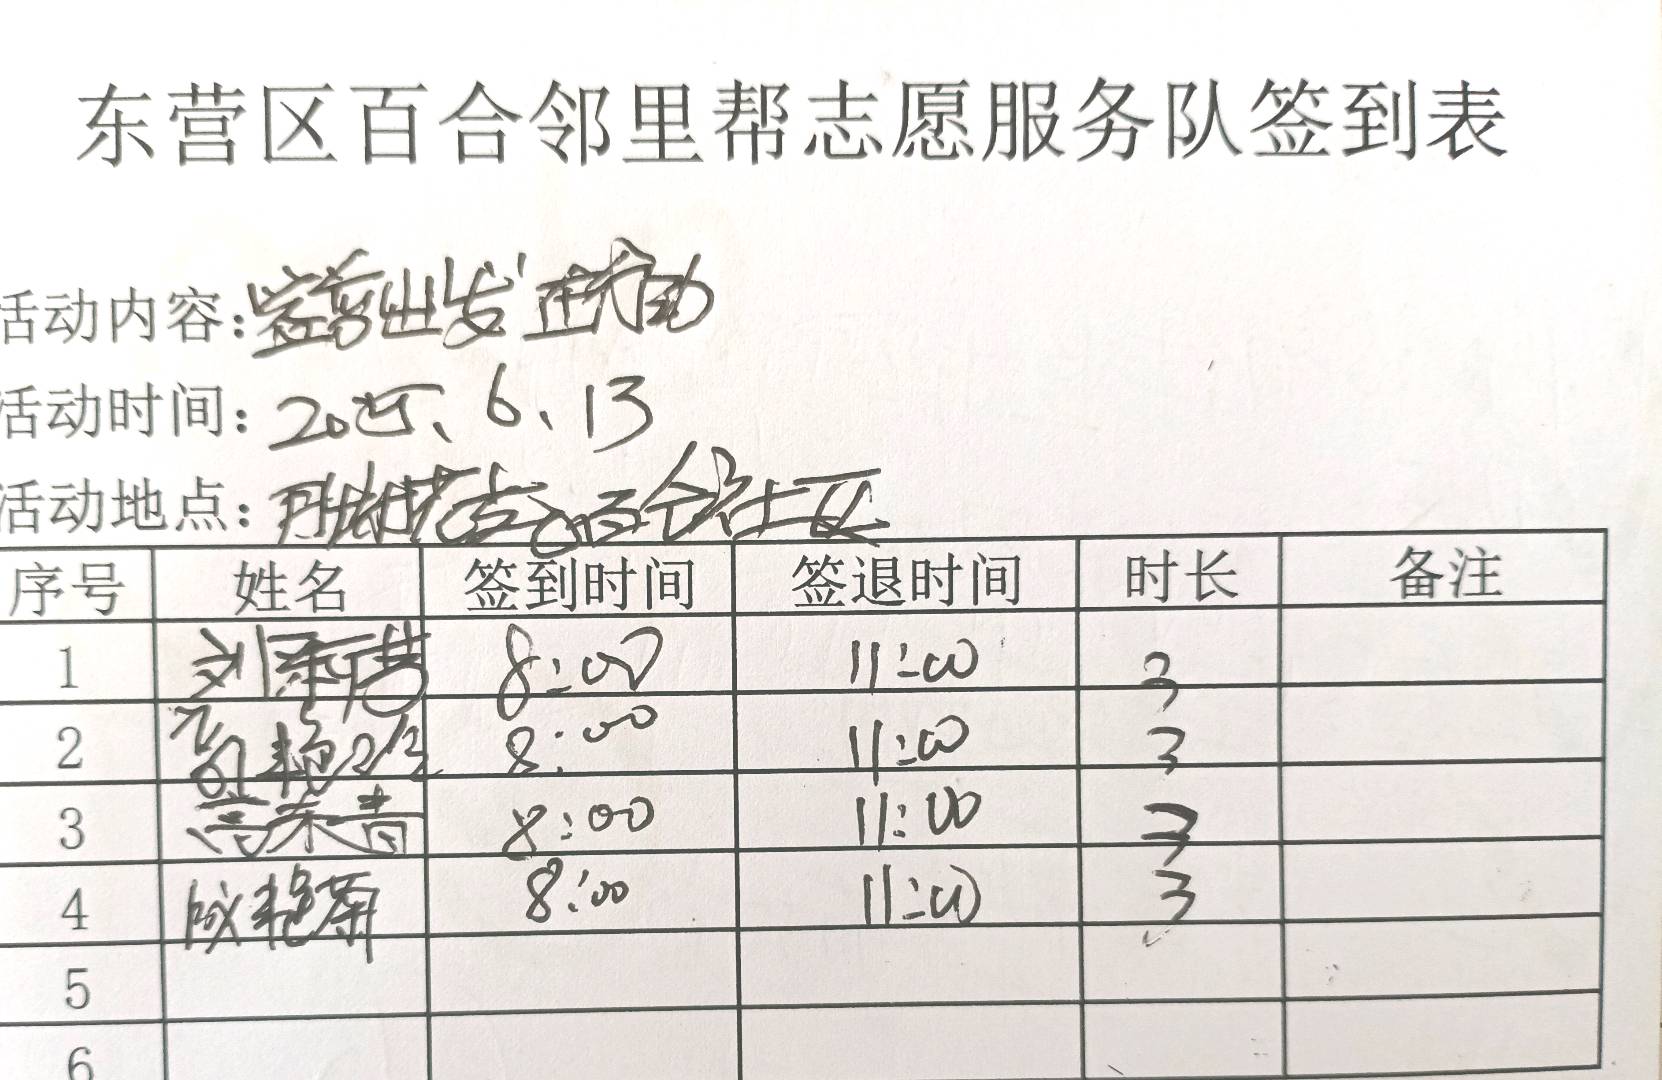 东营区百合邻里帮志愿服务队签到表
活动内容:益剪出发 在行动
活动时间:2025、6、13
活动地点:百合社区
序号 姓名 签到时间 签退时间 时长 备注
1 刘 8:00 11:00 3
2 8:00 11:00 3
3 高东青 8:00 11:00 3
4 成艳菊 8:00 11:00 3
5
6